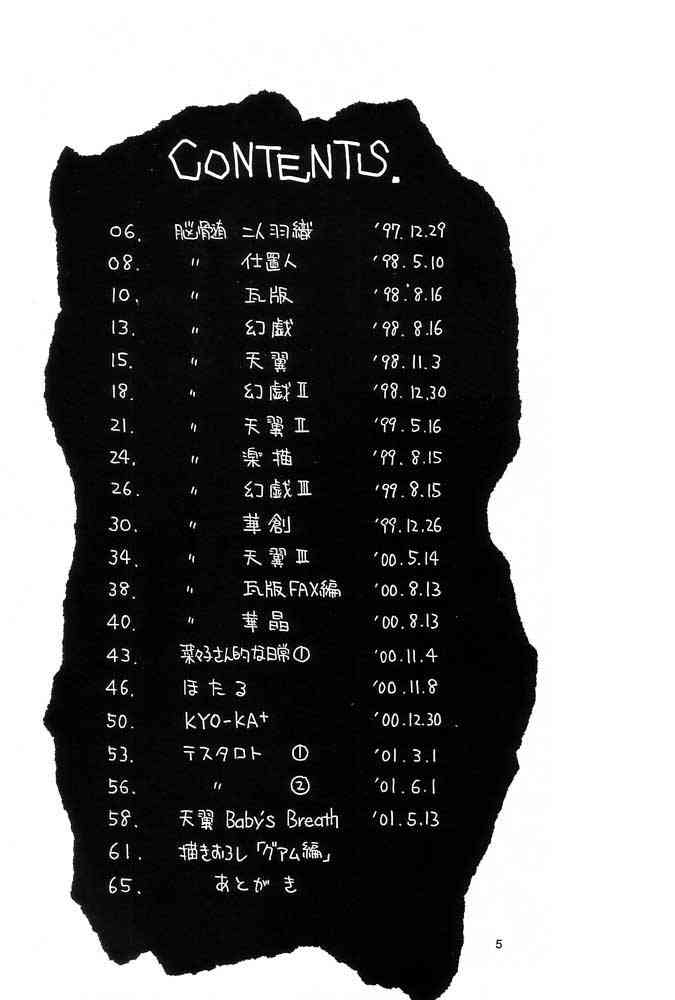 CONTENTS.
06. 脳髄 二人羽織 '97.12.29
08. 〃 仕置人 '98.5.10
10. 〃 瓦版 '98.8.16
13. 〃 幻戯 '98.8.16
15. 〃 天翼 '98.11.3
18. 〃 幻戯Ⅲ '98.12.30
21. 〃 天翼Ⅱ '99.5.16
24. 〃 楽描 '99.8.15
26. 〃 幻戯Ⅲ '99.8.15
30. 〃 華創 '99.12.26
34. 〃 天翼Ⅲ '00.5.14
38. 〃 瓦版FAX編 '00.8.13
40. 〃 華晶 '00.8.13
43. 菜々子さん的な日常① '00.11.4
46. ほたる '00.11.8
50. KYO-KA+ '00.12.30
53. テスタロト ① '01.3.1
56. 〃 ② '01.6.1
58. 天翼 Baby's Breath '01.5.13
61. 描きおろし「グアム編」
65. あとがき
5